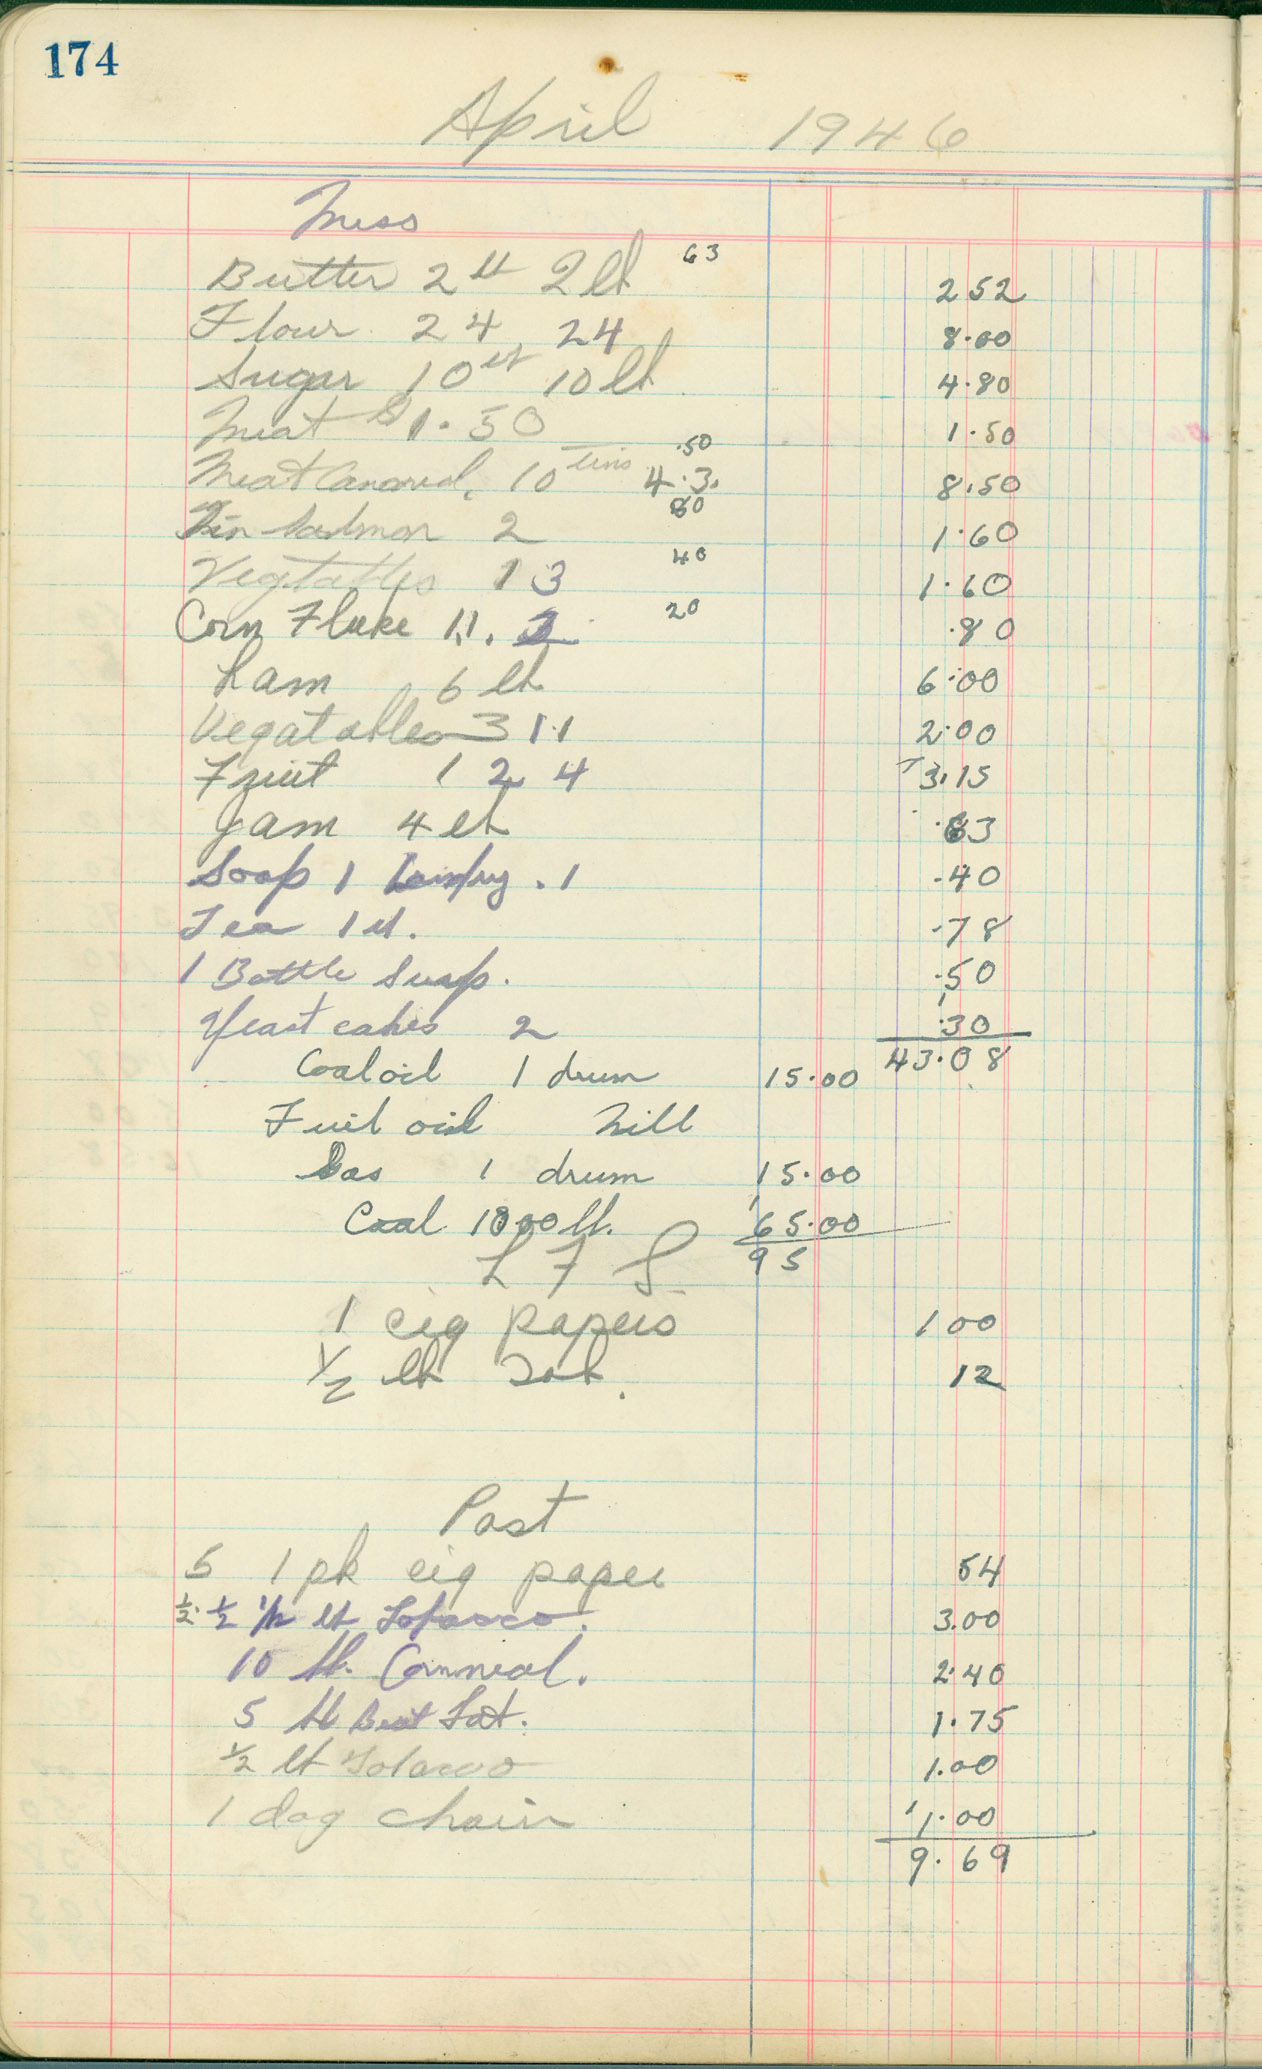 174
April 1946
Mess
Butter 2 lt 2 lt 63 2 52
Flour 24 24 8.00
Sugar 10 lt 10 lt 4.80
Meat $1.50 1.50
Meat Canned. 10 Tins 4.3. .50 8.50
Tin Salmon 2 80 1.60
Vegetables 1 3 40 1.60
Corn Flake 1,1. 2 20 .80
Ham 6 lt 6.00
Vegatables 3 1 1 2.00
Fruit 1 2 4 3.15
Jam 4 lt .63
Soap 1 .1 .40
Tea 1 lt. .78
1 Bottle .50
Yeast cakes 2 .30
43.08
Coal oil 1 drum 15.00
Fuil oil Nill
Gas 1 drum 15.00
Coal 1000 lt. 65.00
95
L F S
1 cig papers 1 00
1/2 lt Tob. 12
Post
5 1 pk cig paper 54
1/2. 1/2 1/2 lt Tobacco. 3.00
10 lt. Cornmeal. 2.40
5 lt Beat Fat. 1.75
1/2 lt Tobacco 1.00
1 dog chain 1.00
9.69